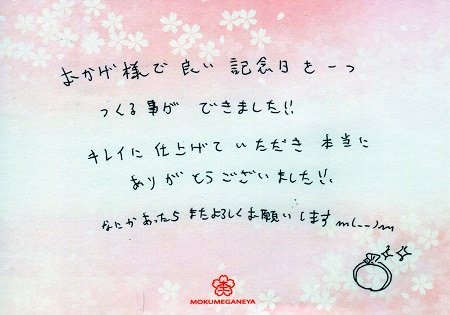 おかげ様で良い記念日を一つ
つくる事ができました!!
キレイに仕上げていただき本当に
ありがとうございました!!
なにかあったらまたよろしくお願いします m(__)m
MOKUMEGANEYA